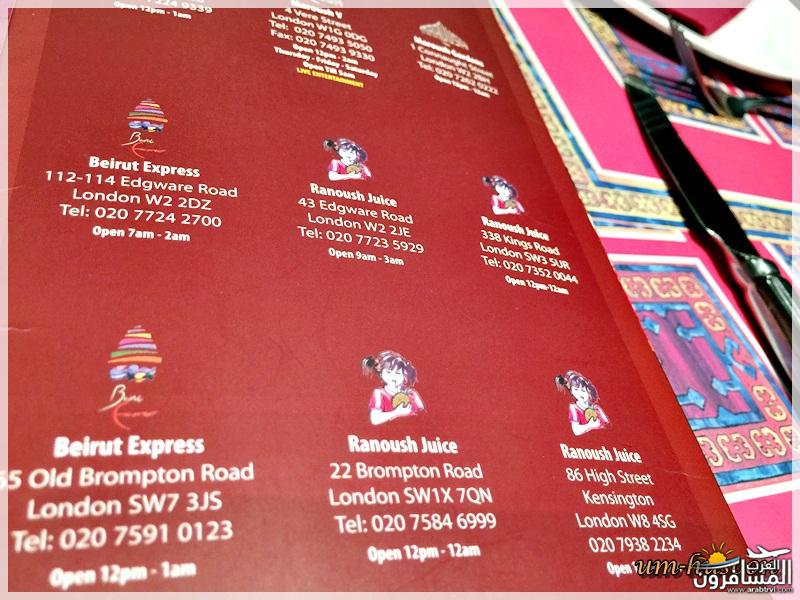 Open 12pm - 1am
Maroush V
4 Vere Street
London W1G 0DG
Tel: 020 7493 5050
Fax: 020 7493 9330
Open 12pm - 2am
Thursday - Friday - Saturday
Open Till 5am
LIVE ENTERTAINMENT
Maroush Gardens
1 Connaught Street
London W2
Tel: 020 7262 0222
Beirut Express
112-114 Edgware Road
London W2 2DZ
Tel: 020 7724 2700
Open 7am - 2am
Ranoush Juice
43 Edgware Road
London W2 2JE
Tel: 020 7723 5929
Open 9am - 3am
Ranoush Juice
338 Kings Road
London SW3 5UR
Tel: 020 7352 0044
Open 12pm-12am
Beirut Express
65 Old Brompton Road
London SW7 3JS
Tel: 020 7591 0123
Open 12pm - 1am
Ranoush Juice
22 Brompton Road
London SW1X 7QN
Tel: 020 7584 6999
Open 12pm - 12am
Ranoush Juice
86 High Street
Kensington
London W8 4SG
020 7938 2234
المسافرون العرب
www.arabtrvl.com